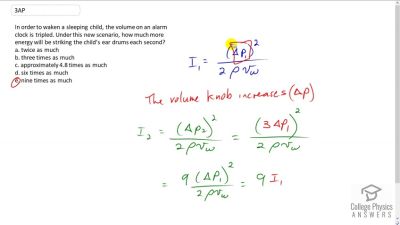 3AP
In order to waken a sleeping child, the volume on an alarm
clock is tripled. Under this new scenario, how much more
energy will be striking the child's ear drums each second?
a. twice as much
b. three times as much
c. approximately 4.8 times as much
d. six times as much
e. nine times as much
I₁ = (ΔP₁)² / 2ρv_w
The volume knob increases (ΔP)
I₂ = (ΔP₂)² / 2ρv_w = (3ΔP₁)² / 2ρv_w
= 9(ΔP₁)² / 2ρv_w = 9 I₁
College Physics
ANSWERS